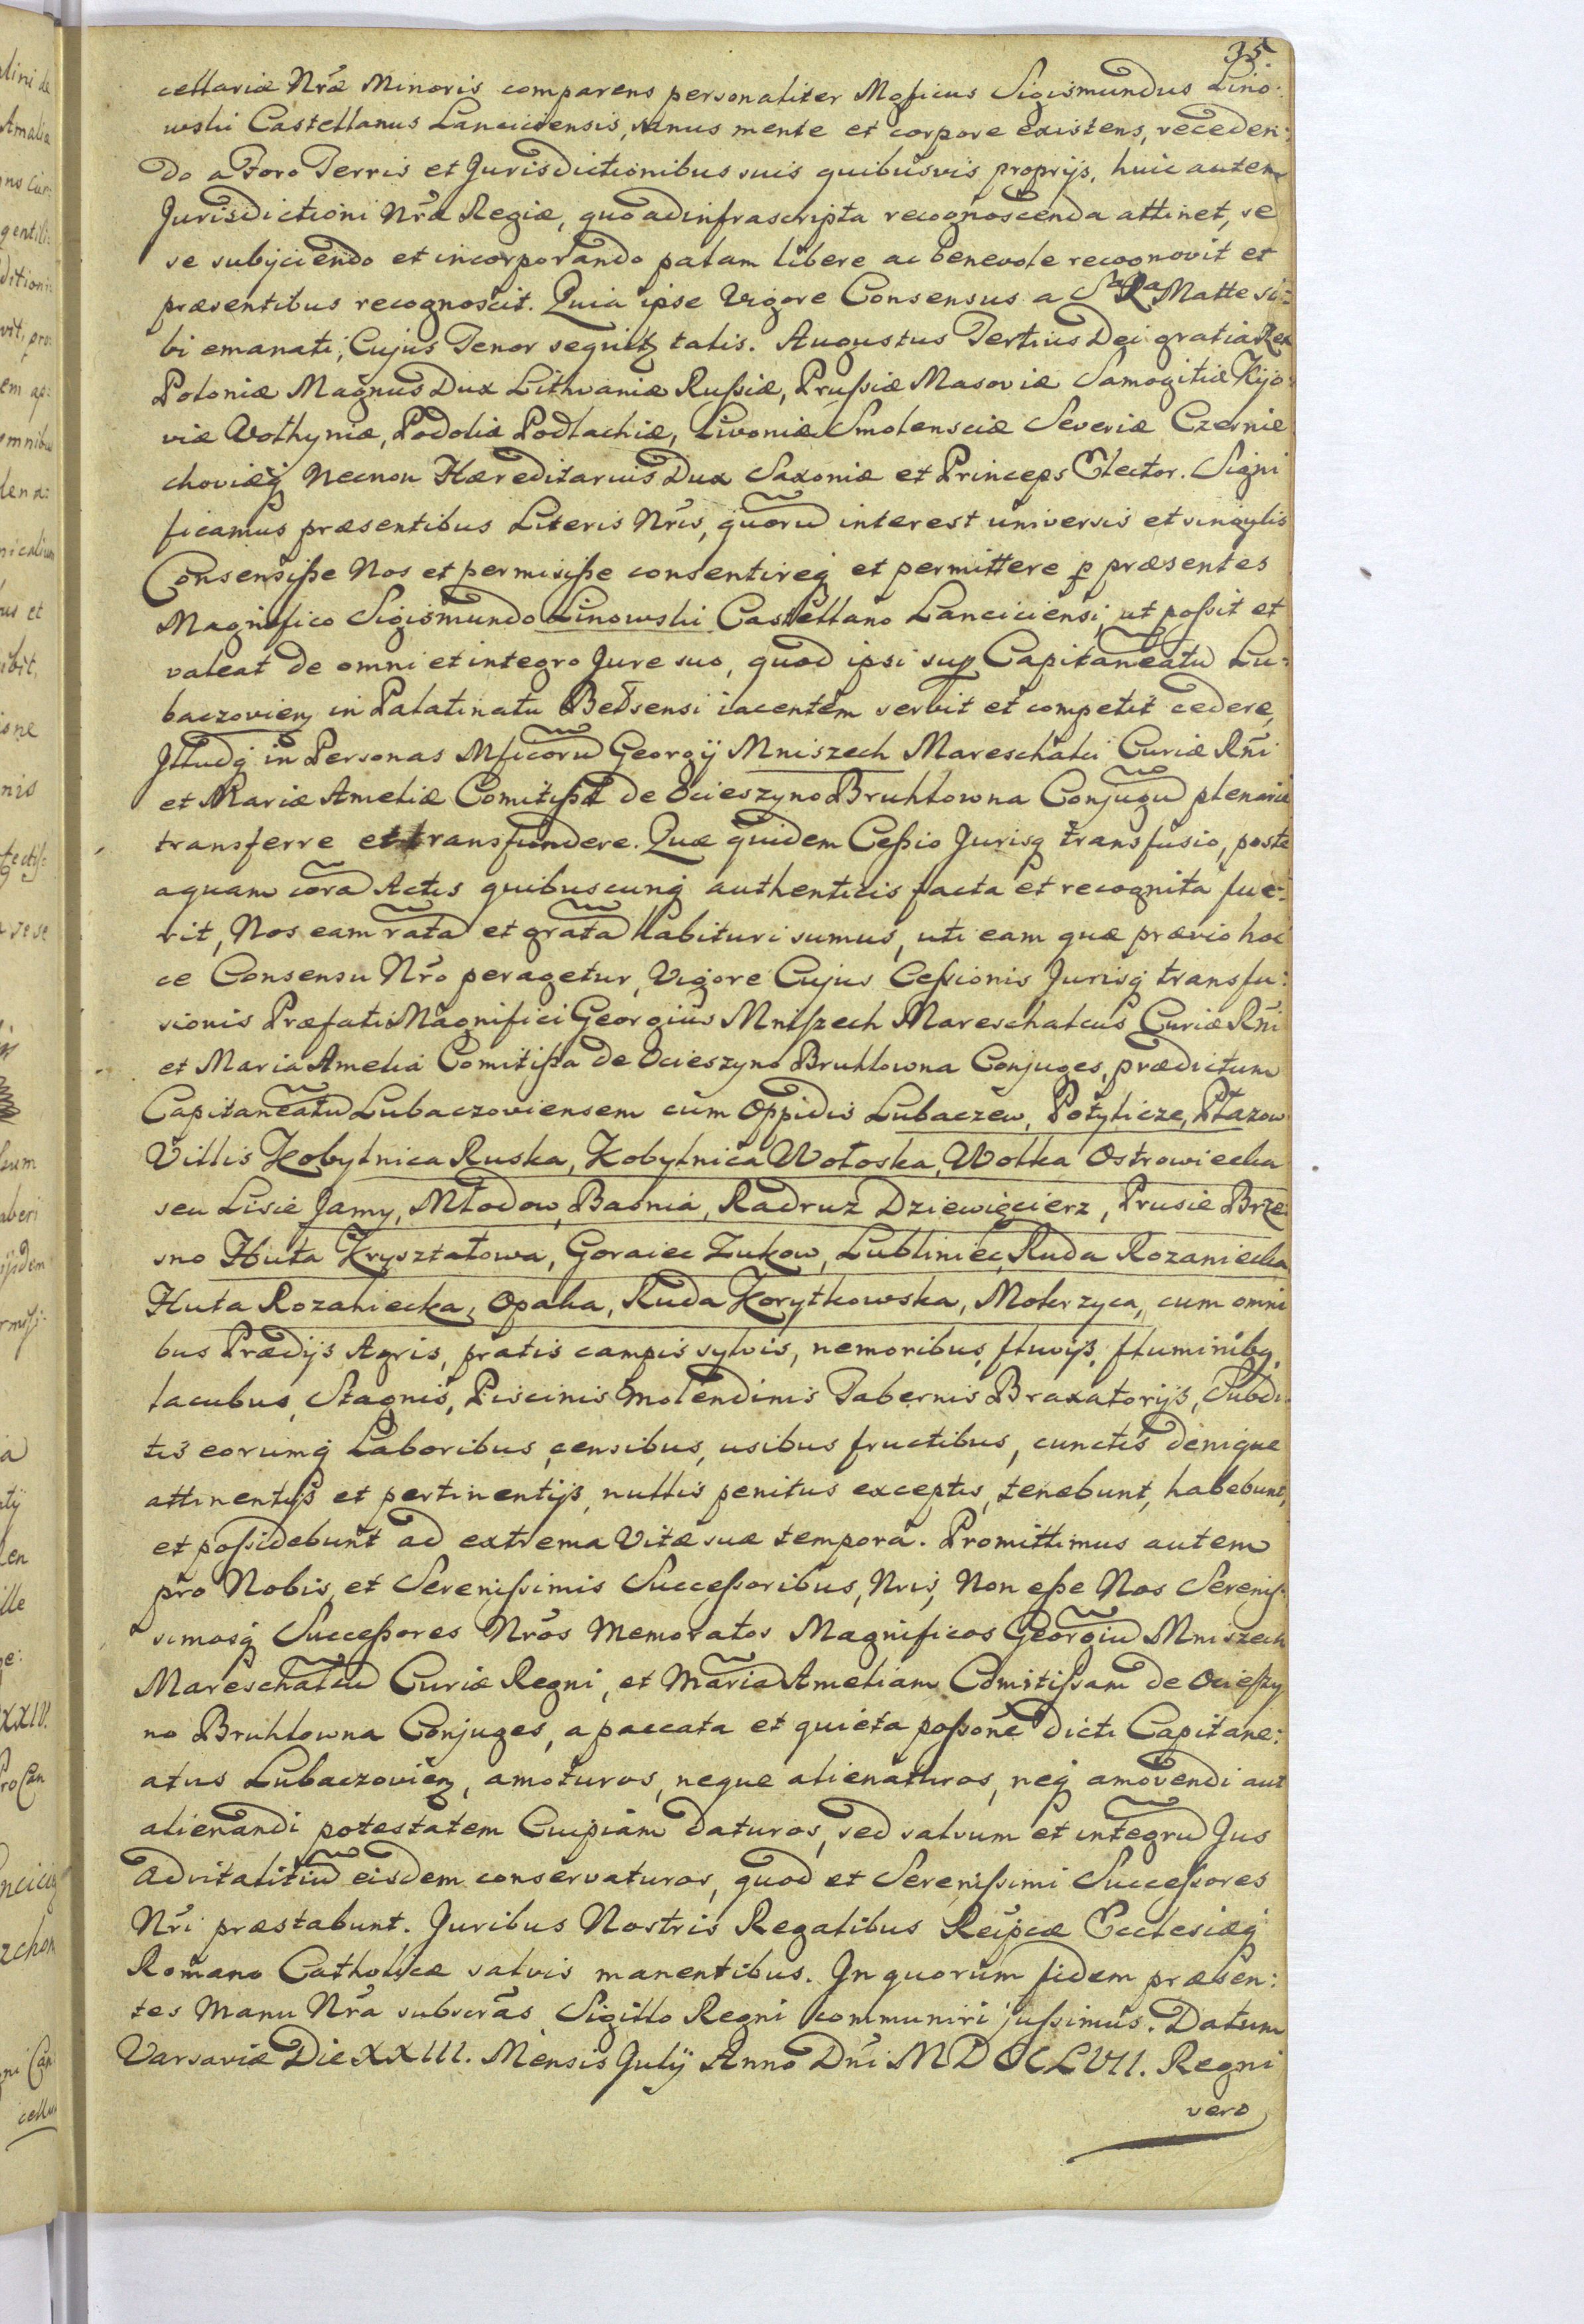 35
cellariæ Nræ Minoris comparens personaliter Mgficus Sigismundus Lino:
wski Castellanus Lanciciensis, sanus mente et corpore existens, receden:
do a Foro Terris et Jurisdictionibus suis quibusvis proprijs, huic autem
Jurisdictioni Nræ Regiæ, quo ad infrascripta recognoscenda attinet, se
se subijciendo et incorporando palam libere ac benevole recognovit et
præsentibus recognoscit. Quia ipse Vigore Consensus a Sa Ra Matte si:
bi emanati, Cujus Tenor sequitz talis. Augustus Tertius Dei gratia Rex
Poloniæ Magnus Dux Lithvaniæ Russiæ, Prussiæ Masoviæ Samogitiæ Kijo:
viæ Volhyniæ, Podoliæ Podlachiæ, Livoniæ Smolensciæ Severiæ Czernie
choviæq Necnon Hæreditarius Dux Saxoniæ et Princeps Elector. Signi
ficamus præsentibus Literis Nris, quoru interest universis et singulis
Consensisse Nos et permisisse consentireq et permittere p præsentes
Magnifico Sigismundo Linowski Castellano Lanciciensi, ut possit et
valeat de omni et integro Jure suo, quod ipsi sup Capitaneatu Lu:
baczovien in Palatinatu Belsensi iacentem servit et competit cedere,
Illudq in Personas Mficoru Georgij Mniszech Mareschalci Curiæ Rni
et Mariæ Ameliæ Comitissæ de Ocieszyno Bruhlowna Conjugu plenarie
transferre et transfundere. Quæ quidem Cessio Jurisq transfusio, poste
aquam cora Actis quibuscunq authenticis facta et recognita fue:
rit, Nos eam rata et grata habituri sumus, uti eam quæ prævio hoc
ce Consensu Nro peragetur, Vigore Cujus Cessionis Jurisq transfu:
sionis Præfati Magnifici Georgius Mniszech Mareschalcus Curiæ Rni
et Maria Amelia Comitissa de Ocieszyno Bruhlowna Conjuges, prædictum
Capitaneatu Lubaczoviensem cum Oppidis Lubaczew, Potylicze, Płazow
Villis Kobylnica Ruska, Kobylnica Wołoska, Wolka Ostrowiecka
seu Lisie Jamy, Młodow, Basnia, Radruz Dziewięcierz, Prusie Brze:
sno Huta Kryształowa, Goraiec Zukow, Lubliniec, Ruda Rozaniecka
Huta Rozaniecka, Opaka, Ruda Korytkowska, Mokrzyca, cum omni
bus Prædijs Agris, pratis campis sylvis, nemoribus, fluvijs, fluminibq,
lacubus, Stagnis, Piscinis Molendinis Tabernis Braxatorijs, Subdi
tis eorumq Laboribus, censibus, usibus fructibus, cunctis denique
attinentijs et pertinentijs, nullis penitus exceptis, tenebunt, habebunt,
et possidebunt ad extrema Vitæ suæ tempora. Promittimus autem
pro Nobis, et Serenissimis Successoribus, Nris, Non esse Nos Serenis
simosq Successores Nros Memoratos Magnificos Georgiu Mniszech
Mareschalcu Curiæ Regni, et Maria Ameliam Comitissam de Ocieszy
no Bruhlowna Conjuges, a paccata et quieta possone dicti Capitane:
atus Lubaczovien, amoturos, neque alienaturos, neq amovendi aut
alienandi potestatem Cuipiam daturos, sed salvum et integru Jus
advitalitiu eisdem conservaturos, quod et Serenissimi Successores
Nri præstabunt. Juribus Nostris Regalibus Reipcæ Ecclesiæq
Romano Catholicæ salvis manentibus. In quorum fidem præsen:
tes Manu Nra subscras, Sigillo Regni communiri jussimus. Datum
Varsaviæ Die XXIII. Mensis Julij Anno Dni MDCCLVII. Regni
vero